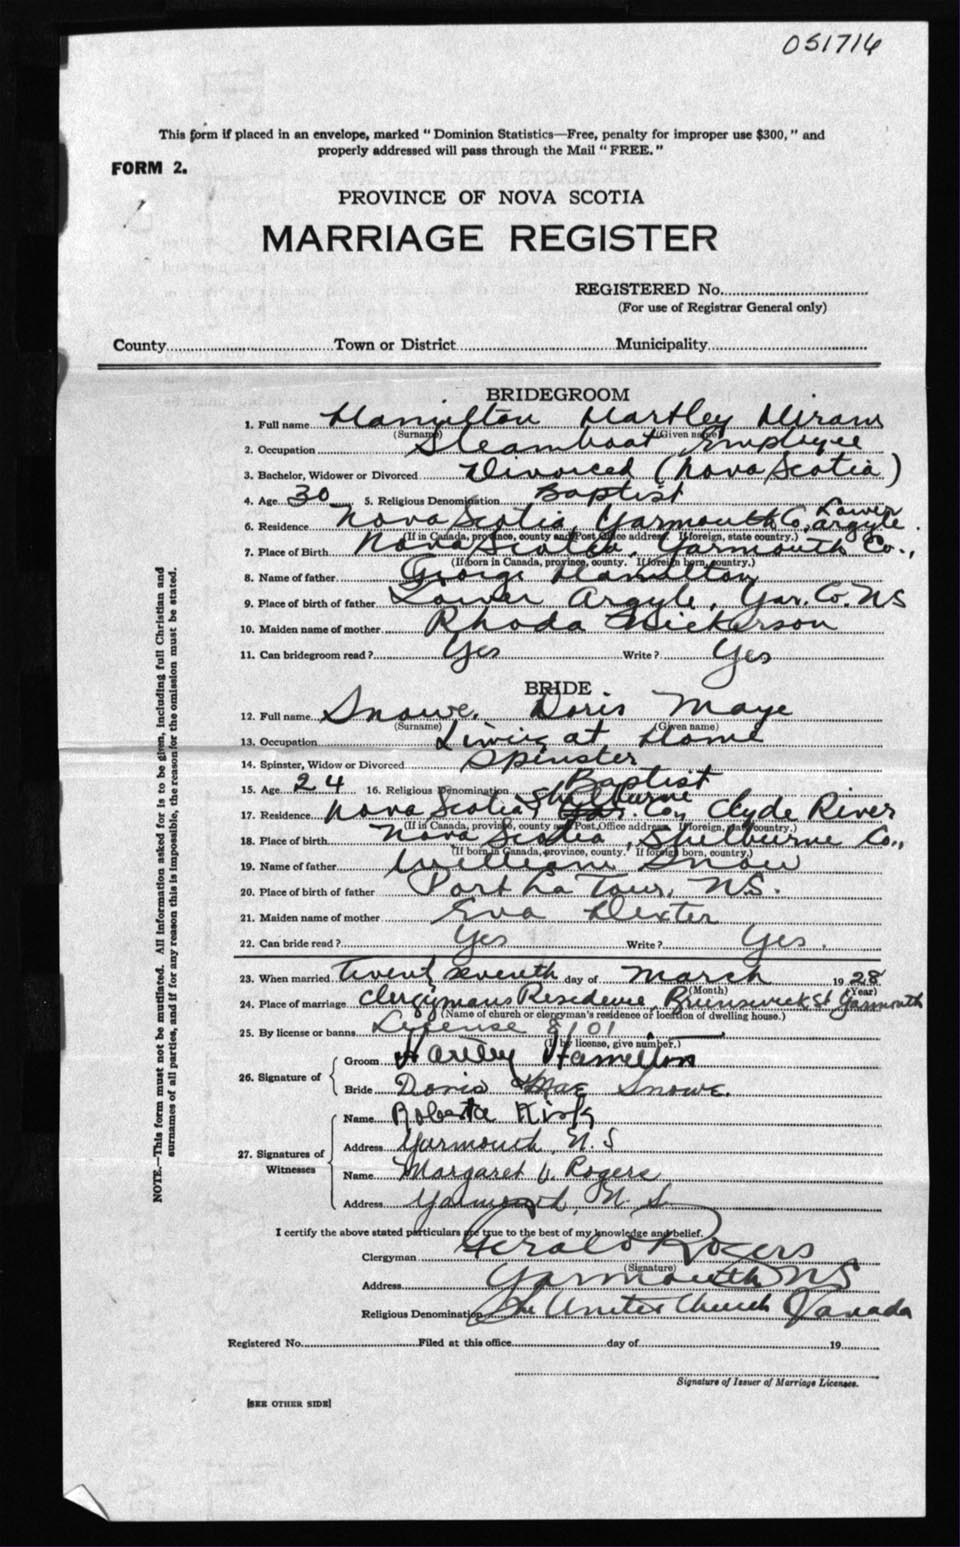 051716
This form if placed in an envelope, marked "Dominion Statistics—Free, penalty for improper use $300," and
properly addressed will pass through the Mail "FREE."
FORM 2.
PROVINCE OF NOVA SCOTIA
MARRIAGE REGISTER
REGISTERED No.
(For use of Registrar General only)
County Town or District Municipality
BRIDEGROOM
1. Full name Hamilton Hartley Hiram
(Surname) (Given name)
2. Occupation Steamboat Employee
3. Bachelor, Widower or Divorced Divorced (Nova Scotia)
4. Age 30 5. Religious Denomination Baptist
6. Residence Nova Scotia, Yarmouth Co, Lower Argyle.
(If in Canada, province, county and Post Office address. If foreign, state country.)
7. Place of Birth Nova Scotia, Yarmouth Co.,
(If born in Canada, province, county. If foreign born, country.)
8. Name of father George Hamilton
9. Place of birth of father Lower Argyle, Yar. Co. NS
10. Maiden name of mother Rhoda Nickerson
11. Can bridegroom read? Yes Write? Yes
BRIDE
12. Full name Snowe, Doris Maye
(Surname) (Given name)
13. Occupation Living at Home
14. Spinster, Widow or Divorced Spinster
15. Age 24 16. Religious Denomination Baptist
17. Residence Nova Scotia, Shelburne Co, Clyde River
(If in Canada, province, county and Post Office address. If foreign, state country.)
18. Place of birth Nova Scotia, Shelburne Co.,
(If born in Canada, province, county. If foreign born, country.)
19. Name of father William Snow
20. Place of birth of father Port La Tour, N.S.
21. Maiden name of mother Eva Dexter
22. Can bride read? Yes Write? Yes.
23. When married Twenty seventh day of March 1928
(Month) (Year)
24. Place of marriage Clergymans Residence, Brunswick St Yarmouth
(Name of church or clergyman's residence or location of dwelling house.)
25. By license or banns License 8101
(If by license, give number.)
26. Signature of Groom Hartley Hamilton
Bride Doris Mae Snowe.
27. Signatures of Witnesses Name Roberta
Address Yarmouth, N.S
Name Margaret V. Rogers
Address Yarmouth, N.S.
I certify the above stated particulars are true to the best of my knowledge and belief.
Clergyman Gerald Rogers
(Signature)
Address Yarmouth NS
Religious Denomination The United Church of Canada
Registered No. Filed at this office day of 19
Signature of Issuer of Marriage Licenses.
[SEE OTHER SIDE]
NOTE.—This form must not be mutilated. All information asked for is to be given, including full Christian and
surnames of all parties, and if for any reason this is impossible, the reason for the omission must be stated.